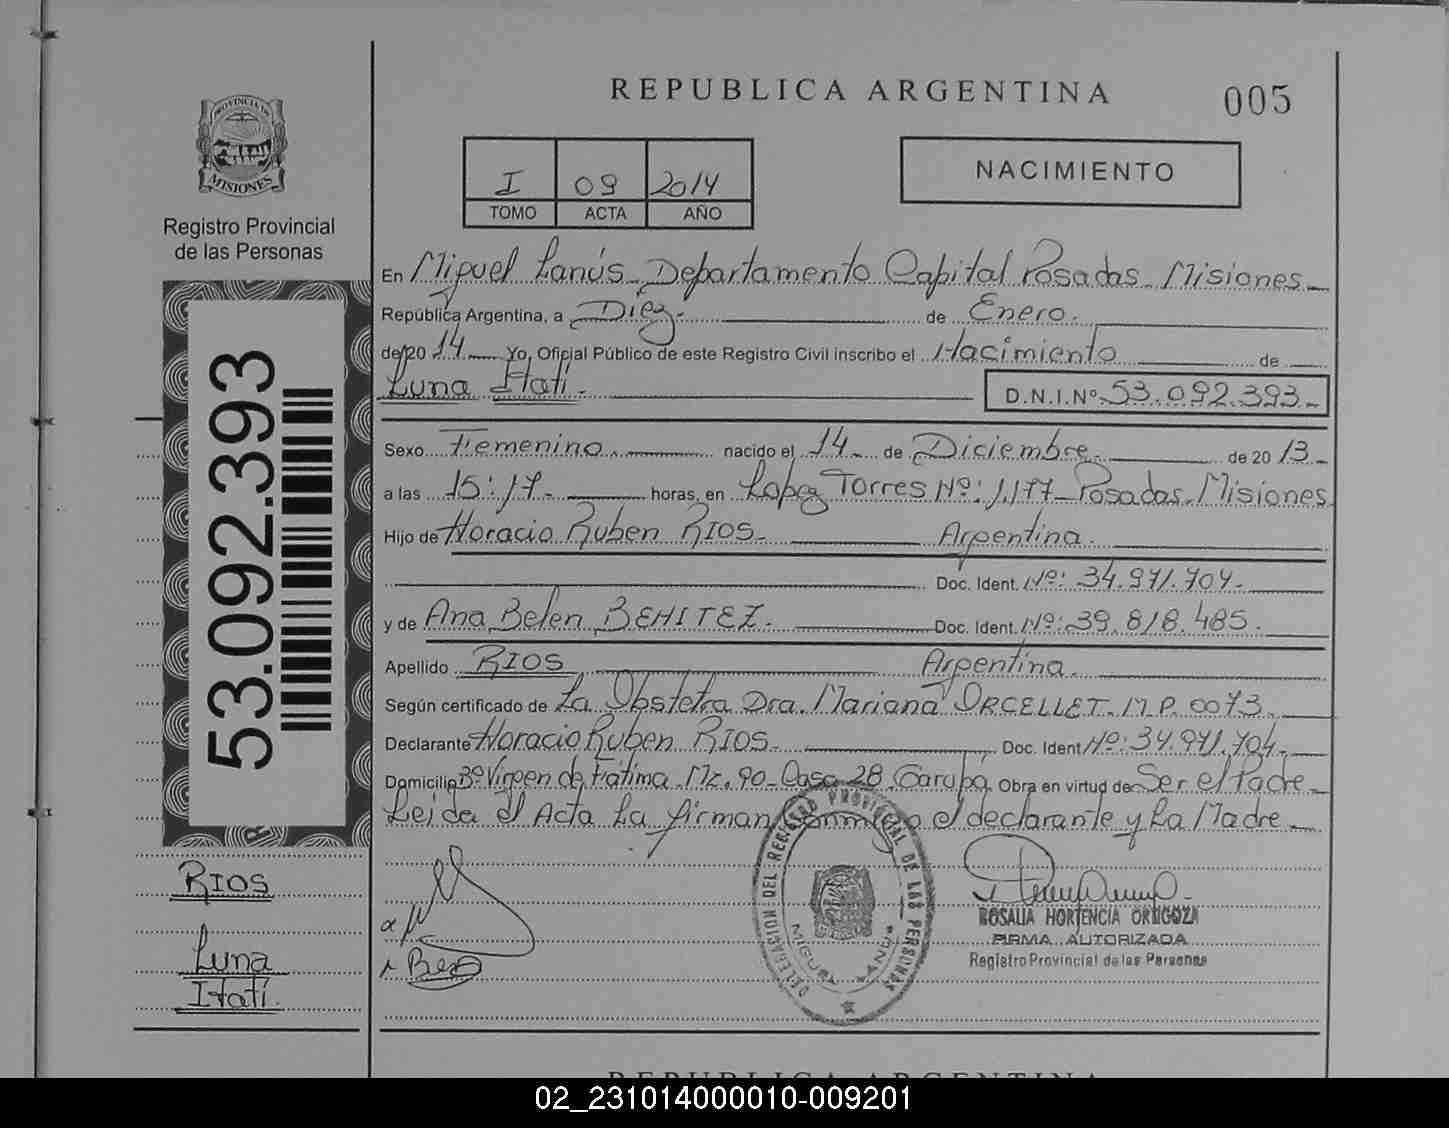 REPUBLICA ARGENTINA
005
PROVINCIA DE
MISIONES
Registro Provincial
de las Personas
I 09 2014
TOMO ACTA AÑO
NACIMIENTO
En Miguel Lanús - Departamento Capital Posadas - Misiones -
República Argentina, a Diez - de Enero -
de 20 14 - Yo, Oficial Público de este Registro Civil inscribo el Nacimiento de
Luna Itatí - D.N.I.Nº 53.092.393 -
Sexo Femenino - nacido el 14 - de Diciembre - de 20 13 -
a las 15:17 - horas, en Lopez Torres Nº: 1.177 - Posadas - Misiones
Hijo de Horacio Ruben RIOS - Argentina -
Doc. Ident. Nº: 34.971.704 -
y de Ana Belen BENITEZ - Doc. Ident. Nº: 39.818.485 -
Apellido RIOS Argentina -
Según certificado de La Obstetra Dra. Mariana ORCELLET - M.P. 0073 -
Declarante Horacio Ruben RIOS - Doc. Ident Nº: 34.971.704 -
Domicilio Bº Virgen de Fátima - Mz. 90 - Casa 28 Garupá Obra en virtud de Ser el Padre -
Leida el Acta La firman conmigo el declarante y La Madre -
53.092.393
RIOS
Luna
Itatí
DELEGACION DEL REGISTRO PROVINCIAL DE LAS PERSONAS
MIGUEL LANUS
ROSALIA HORTENCIA ORTIGOZA
FIRMA AUTORIZADA
Registro Provincial de las Personas
02_231014000010-009201